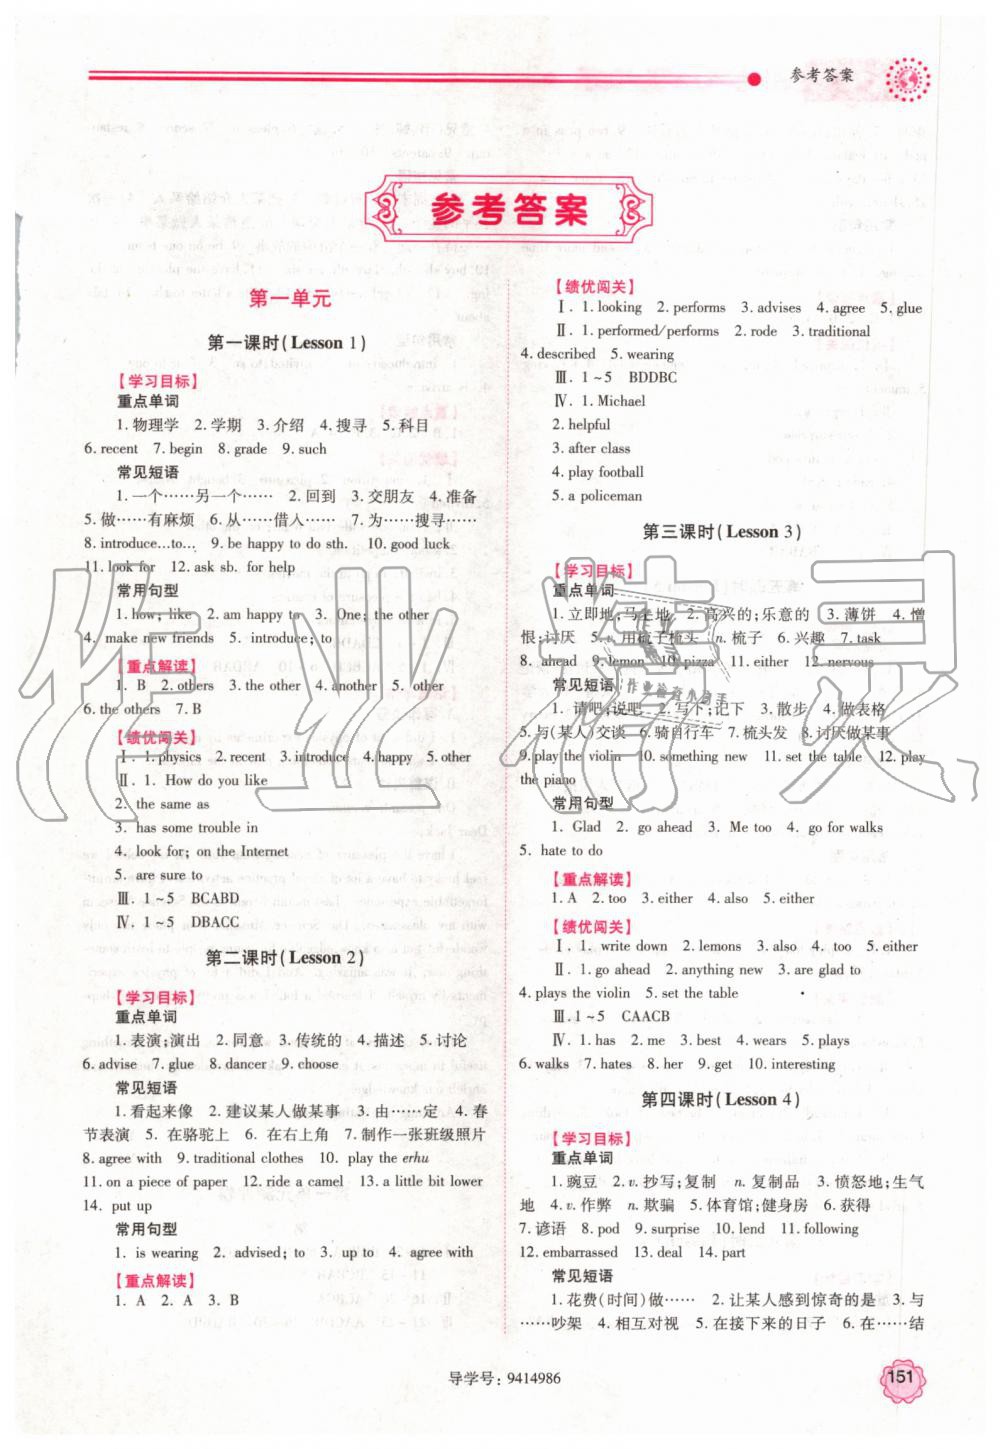 参考答案
参考答案
第一单元
第一课时(Lesson 1)
【学习目标】
重点单词
1. 物理学 2. 学期 3. 介绍 4. 搜寻 5. 科目
6. recent 7. begin 8. grade 9. such
常见短语
1. 一个……另一个…… 2. 回到 3. 交朋友 4. 准备
5. 做……有麻烦 6. 从……借入…… 7. 为……搜寻……
8. introduce...to... 9. be happy to do sth. 10. good luck
11. look for 12. ask sb. for help
常用句型
1. how; like 2. am happy to 3. One; the other
4. make new friends 5. introduce; to
【重点解读】
1. B 2. others 3. the other 4. another 5. other
6. the others 7. B
【绩优闯关】
Ⅰ. 1. physics 2. recent 3. introduce 4. happy 5. other
Ⅱ. 1. How do you like
2. the same as
3. has some trouble in
4. look for; on the Internet
5. are sure to
Ⅲ. 1~5 BCABD
Ⅳ. 1~5 DBACC
第二课时(Lesson 2)
【学习目标】
重点单词
1. 表演;演出 2. 同意 3. 传统的 4. 描述 5. 讨论
6. advise 7. glue 8. dancer 9. choose
常见短语
1. 看起来像 2. 建议某人做某事 3. 由……定 4. 春
节表演 5. 在骆驼上 6. 在右上角 7. 制作一张班级照片
8. agree with 9. traditional clothes 10. play the erhu
11. on a piece of paper 12. ride a camel 13. a little bit lower
14. put up
常用句型
1. is wearing 2. advised; to 3. up to 4. agree with
【重点解读】
1. A 2. A 3. B
【绩优闯关】
Ⅰ. 1. looking 2. performs 3. advises 4. agree 5. glue
Ⅱ. 1. performed/performs 2. rode 3. traditional
4. described 5. wearing
Ⅲ. 1~5 BDDBC
Ⅳ. 1. Michael
2. helpful
3. after class
4. play football
5. a policeman
第三课时(Lesson 3)
【学习目标】
重点单词
1. 立即地;马上地 2. 高兴的;乐意的 3. 薄饼 4. 憎
恨;讨厌 5. v. 用梳子梳头 n. 梳子 6. 兴趣 7. task
8. ahead 9. lemon 10. pizza 11. either 12. nervous
常见短语
1. 请吧;说吧 2. 写下;记下 3. 散步 4. 做表格
5. 与(某人)交谈 6. 骑自行车 7. 梳头发 8. 讨厌做某事
9. play the violin 10. something new 11. set the table 12. play
the piano
常用句型
1. Glad 2. go ahead 3. Me too 4. go for walks
5. hate to do
【重点解读】
1. A 2. too 3. either 4. also 5. either
【绩优闯关】
Ⅰ. 1. write down 2. lemons 3. also 4. too 5. either
Ⅱ. 1. go ahead 2. anything new 3. are glad to
4. plays the violin 5. set the table
Ⅲ. 1~5 CAACB
Ⅳ. 1. has 2. me 3. best 4. wears 5. plays
6. walks 7. hates 8. her 9. get 10. interesting
第四课时(Lesson 4)
【学习目标】
重点单词
1. 豌豆 2. v. 抄写;复制 n. 复制品 3. 愤怒地;生气
地 4. v. 作弊 n. 欺骗 5. 体育馆;健身房 6. 获得
7. 谚语 8. pod 9. surprise 10. lend 11. following
12. embarrassed 13. deal 14. part
常见短语
1. 花费(时间)做…… 2. 让某人感到惊奇的是 3. 与
……吵架 4. 相互对视 5. 在接下来的日子 6. 在……结
导学号: 9414986
151
作业精灵
作业检查小助手